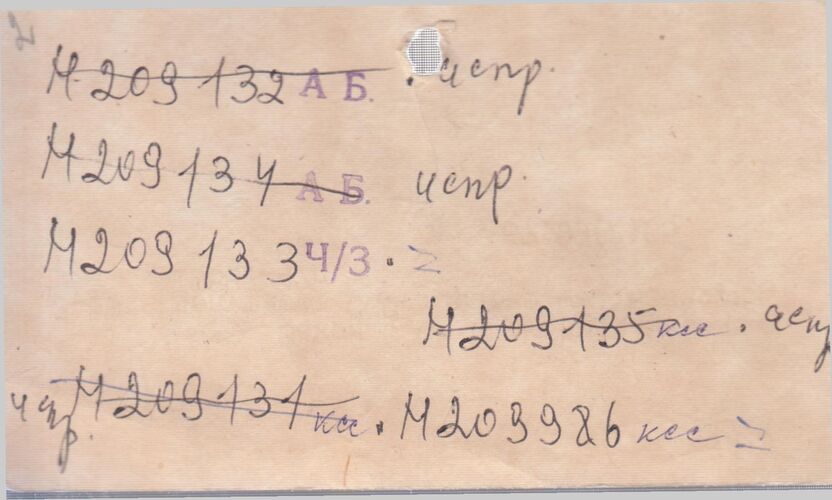 2
М209132 АБ. испр.
М209134 АБ. испр.
М209133 Ч/З
М209135 ксс. испр
испр. М209131 ксс. М209986 ксс